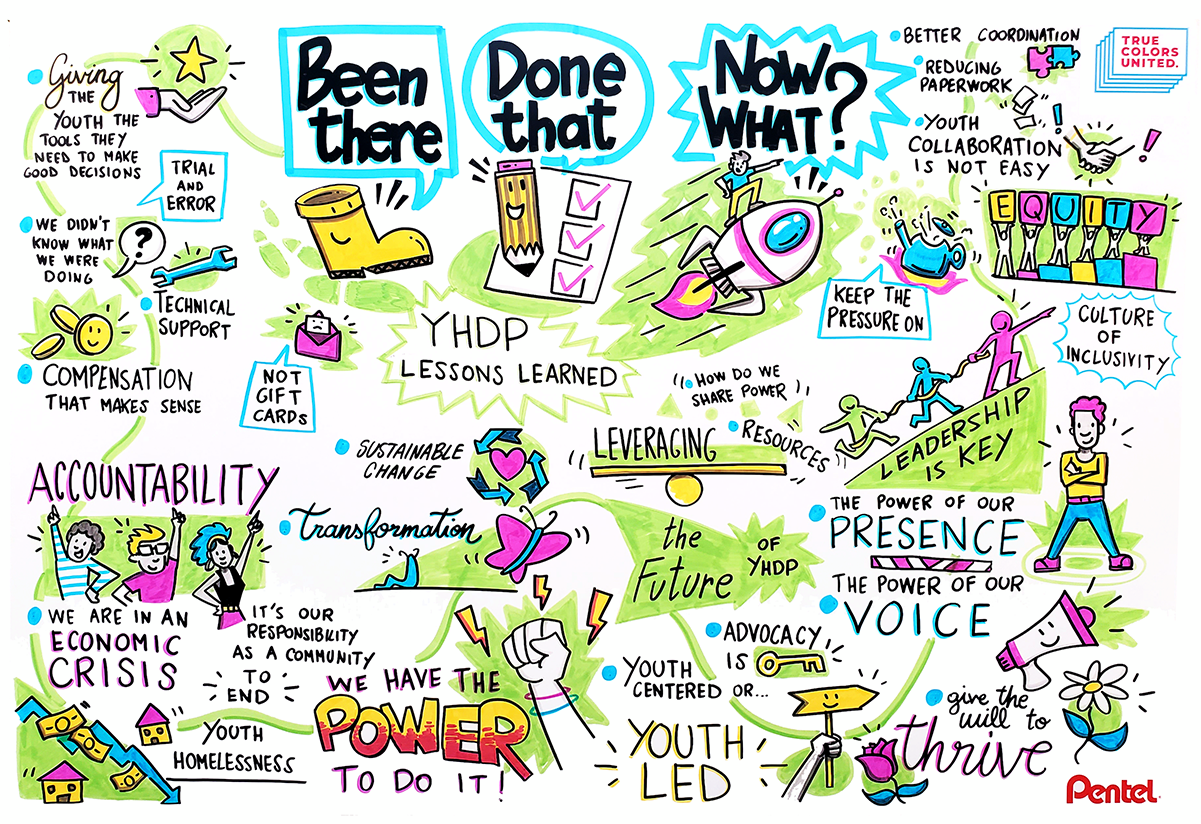 Been
there
Done
that
Now
WHAT?
YHDP
LESSONS LEARNED
Giving
THE
YOUTH THE
TOOLS THEY
NEED TO MAKE
GOOD DECISIONS
TRIAL
AND
ERROR
WE DIDN'T
KNOW WHAT
WE WERE
DOING
?
TECHNICAL
SUPPORT
COMPENSATION
THAT MAKES SENSE
NOT
GIFT
CARDS
ACCOUNTABILITY
WE ARE IN AN
ECONOMIC
CRISIS
IT'S OUR
RESPONSIBILITY
AS A COMMUNITY
TO
END
YOUTH
HOMELESSNESS
WE HAVE THE
POWER
TO DO IT!
SUSTAINABLE
CHANGE
Transformation
HOW DO WE
SHARE POWER
LEVERAGING
RESOURCES
the
Future
OF
YHDP
BETTER COORDINATION
REDUCING
PAPERWORK
YOUTH
COLLABORATION
IS NOT EASY
!
!
EQUITY
KEEP THE
PRESSURE ON
CULTURE
OF
INCLUSIVITY
LEADERSHIP
IS KEY
THE POWER OF OUR
PRESENCE
THE POWER OF OUR
VOICE
ADVOCACY
IS
YOUTH
CENTERED OR...
YOUTH
LED
give the
will to
thrive
TRUE
COLORS
UNITED.
Pentel